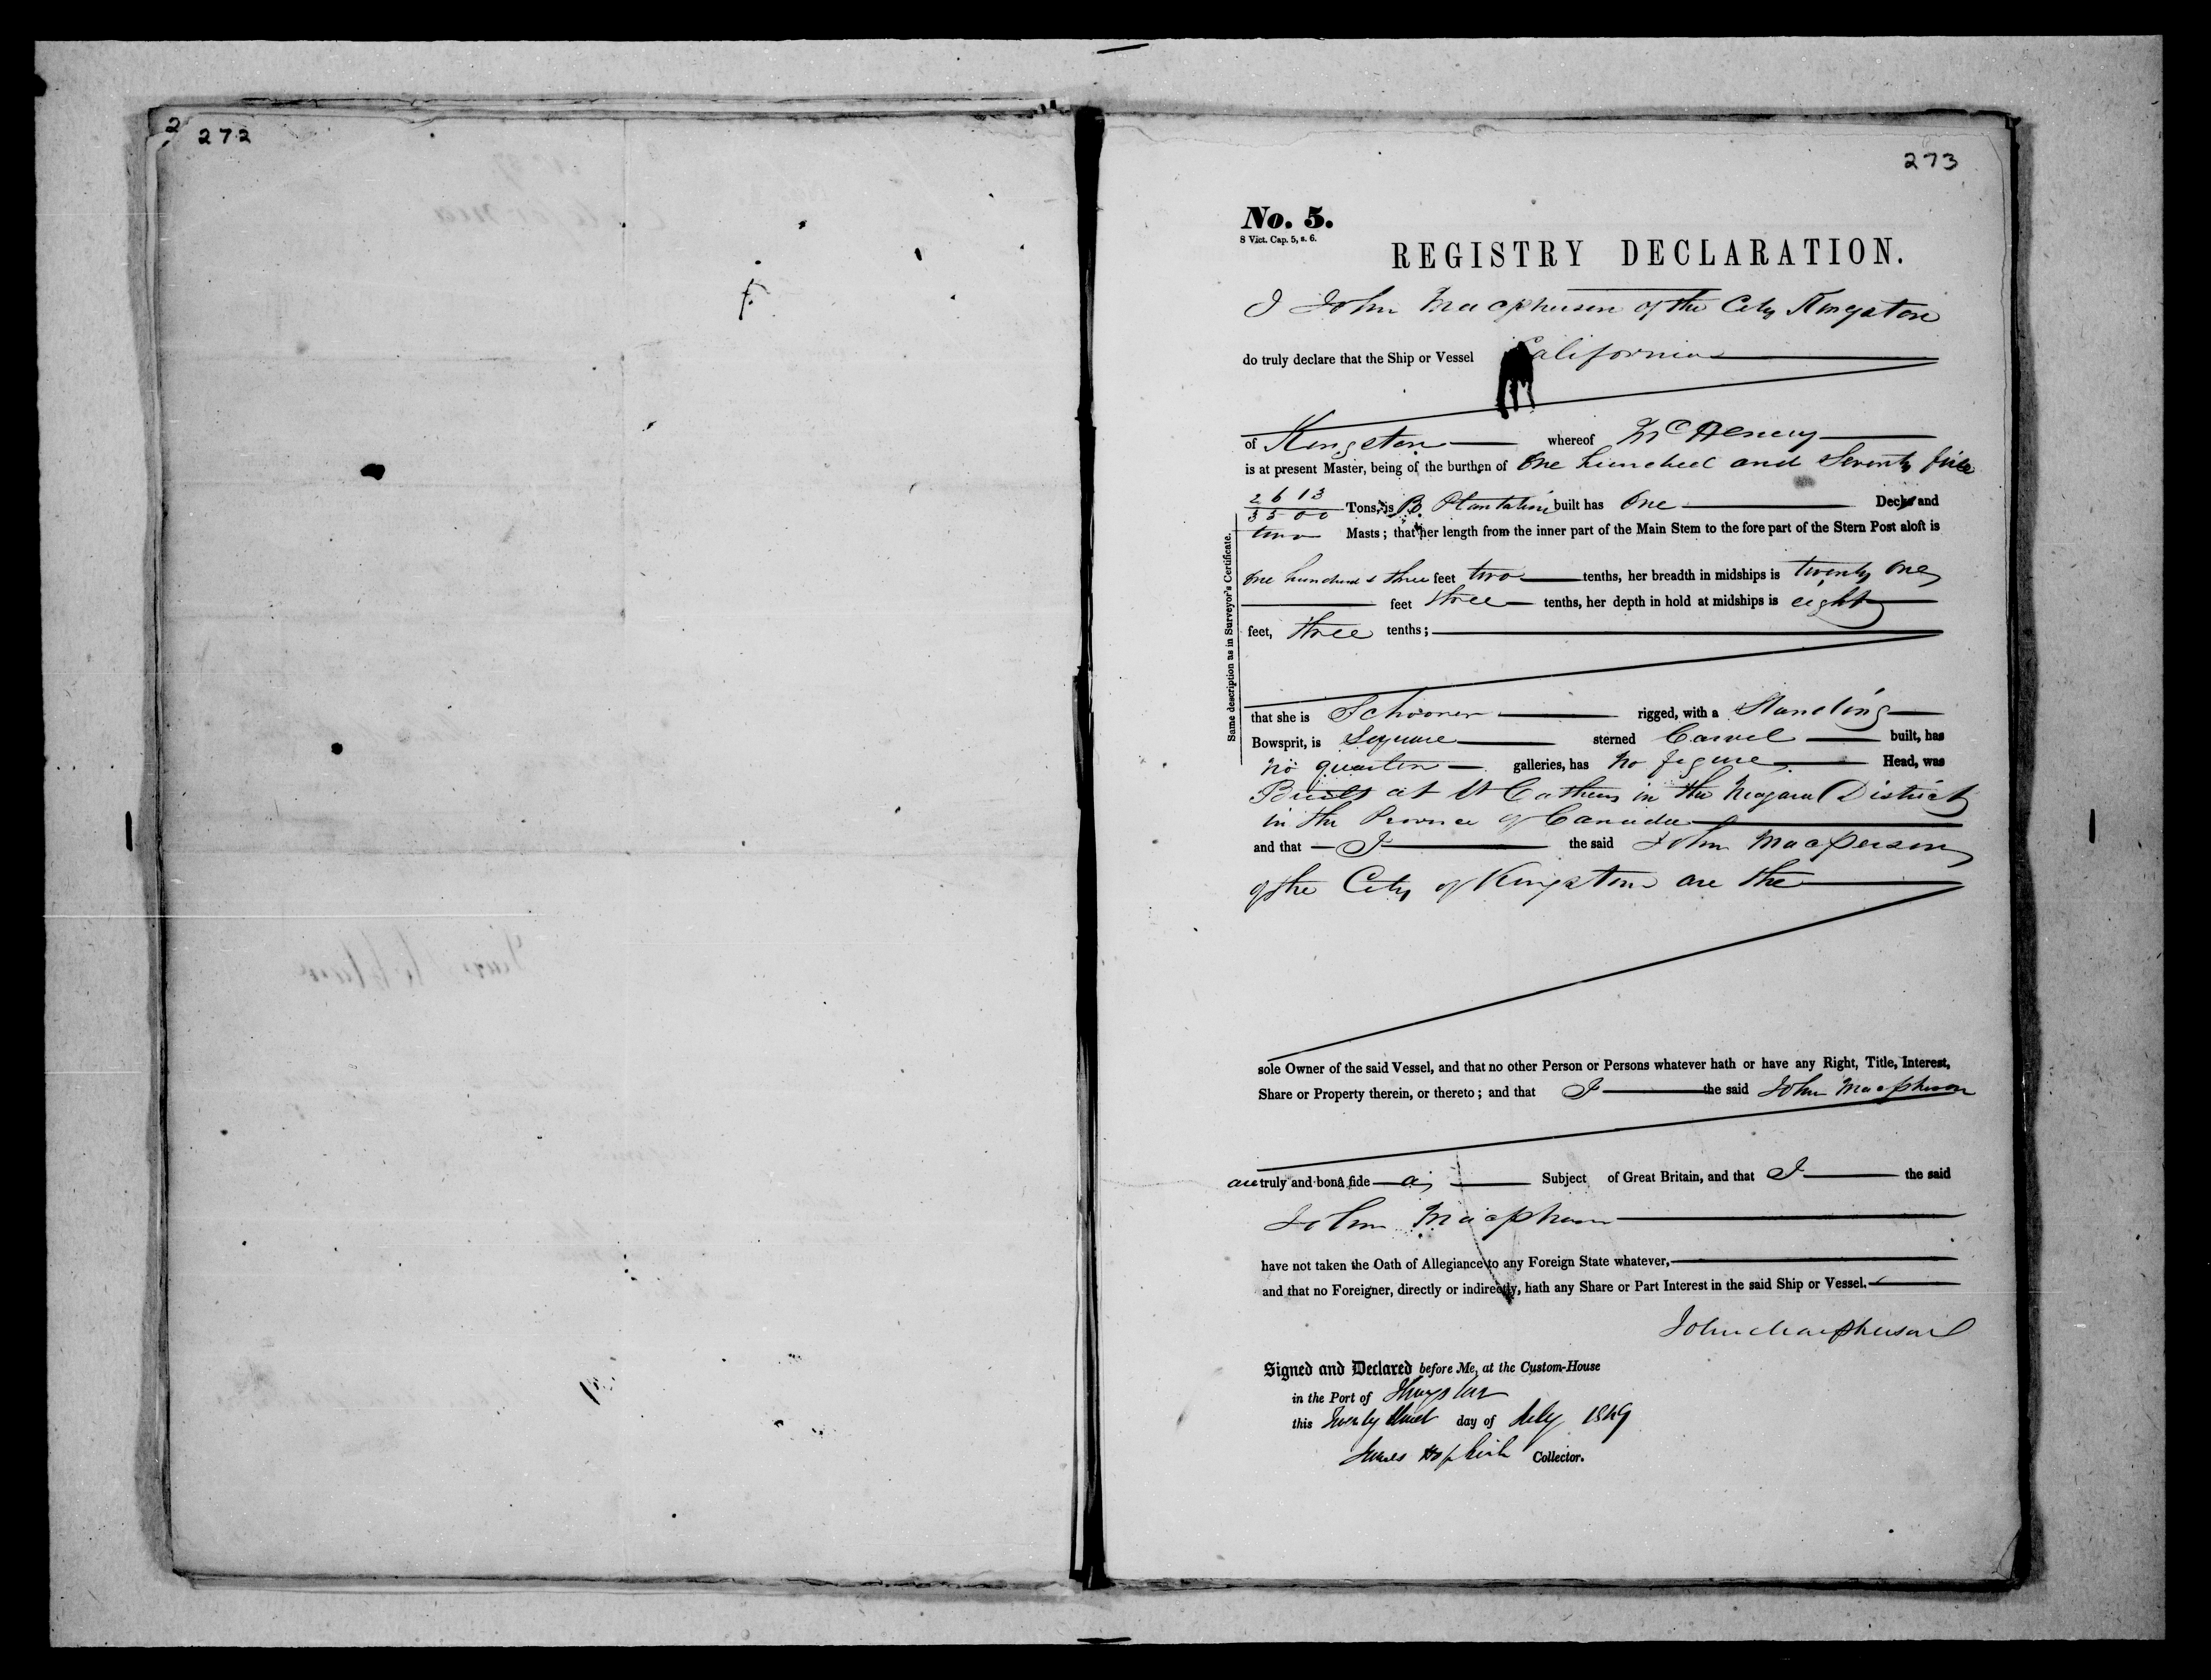 2
272
273
No. 5.
8 Vict. Cap. 5, s. 6.
REGISTRY DECLARATION.
I John Macpherson of the City Kingston
do truly declare that the Ship or Vessel California
of Kingston whereof
is at present Master, being of the burthen of One hundred and Seventy five
2613
3500 Tons, is B. Plantation built has One Decks and
two Masts; that her length from the inner part of the Main Stem to the fore part of the Stern Post aloft is
One hundred & three feet two tenths, her breadth in midships is twenty One
feet three tenths, her depth in hold at midships is eight
feet, three tenths;
Same description as in Surveyor's Certificate.
that she is Schooner rigged, with a Standing
Bowsprit, is Square sterned Carvel built, has
no quarter galleries, has no figure Head, was
Built at St Catherns in the Niagara District
in the Province of Canada
and that I the said John Macperson
of the City of Kingston are the
sole Owner of the said Vessel, and that no other Person or Persons whatever hath or have any Right, Title, Interest,
Share or Property therein, or thereto; and that I the said John Macpherson
are truly and bonâ fide a Subject of Great Britain, and that I the said
John Macpherson
have not taken the Oath of Allegiance to any Foreign State whatever,
and that no Foreigner, directly or indirectly, hath any Share or Part Interest in the said Ship or Vessel.
John Macpherson
Signed and Declared before Me, at the Custom-House
in the Port of Kingston
this Twenty third day of July 1849
James Hopkirk Collector.